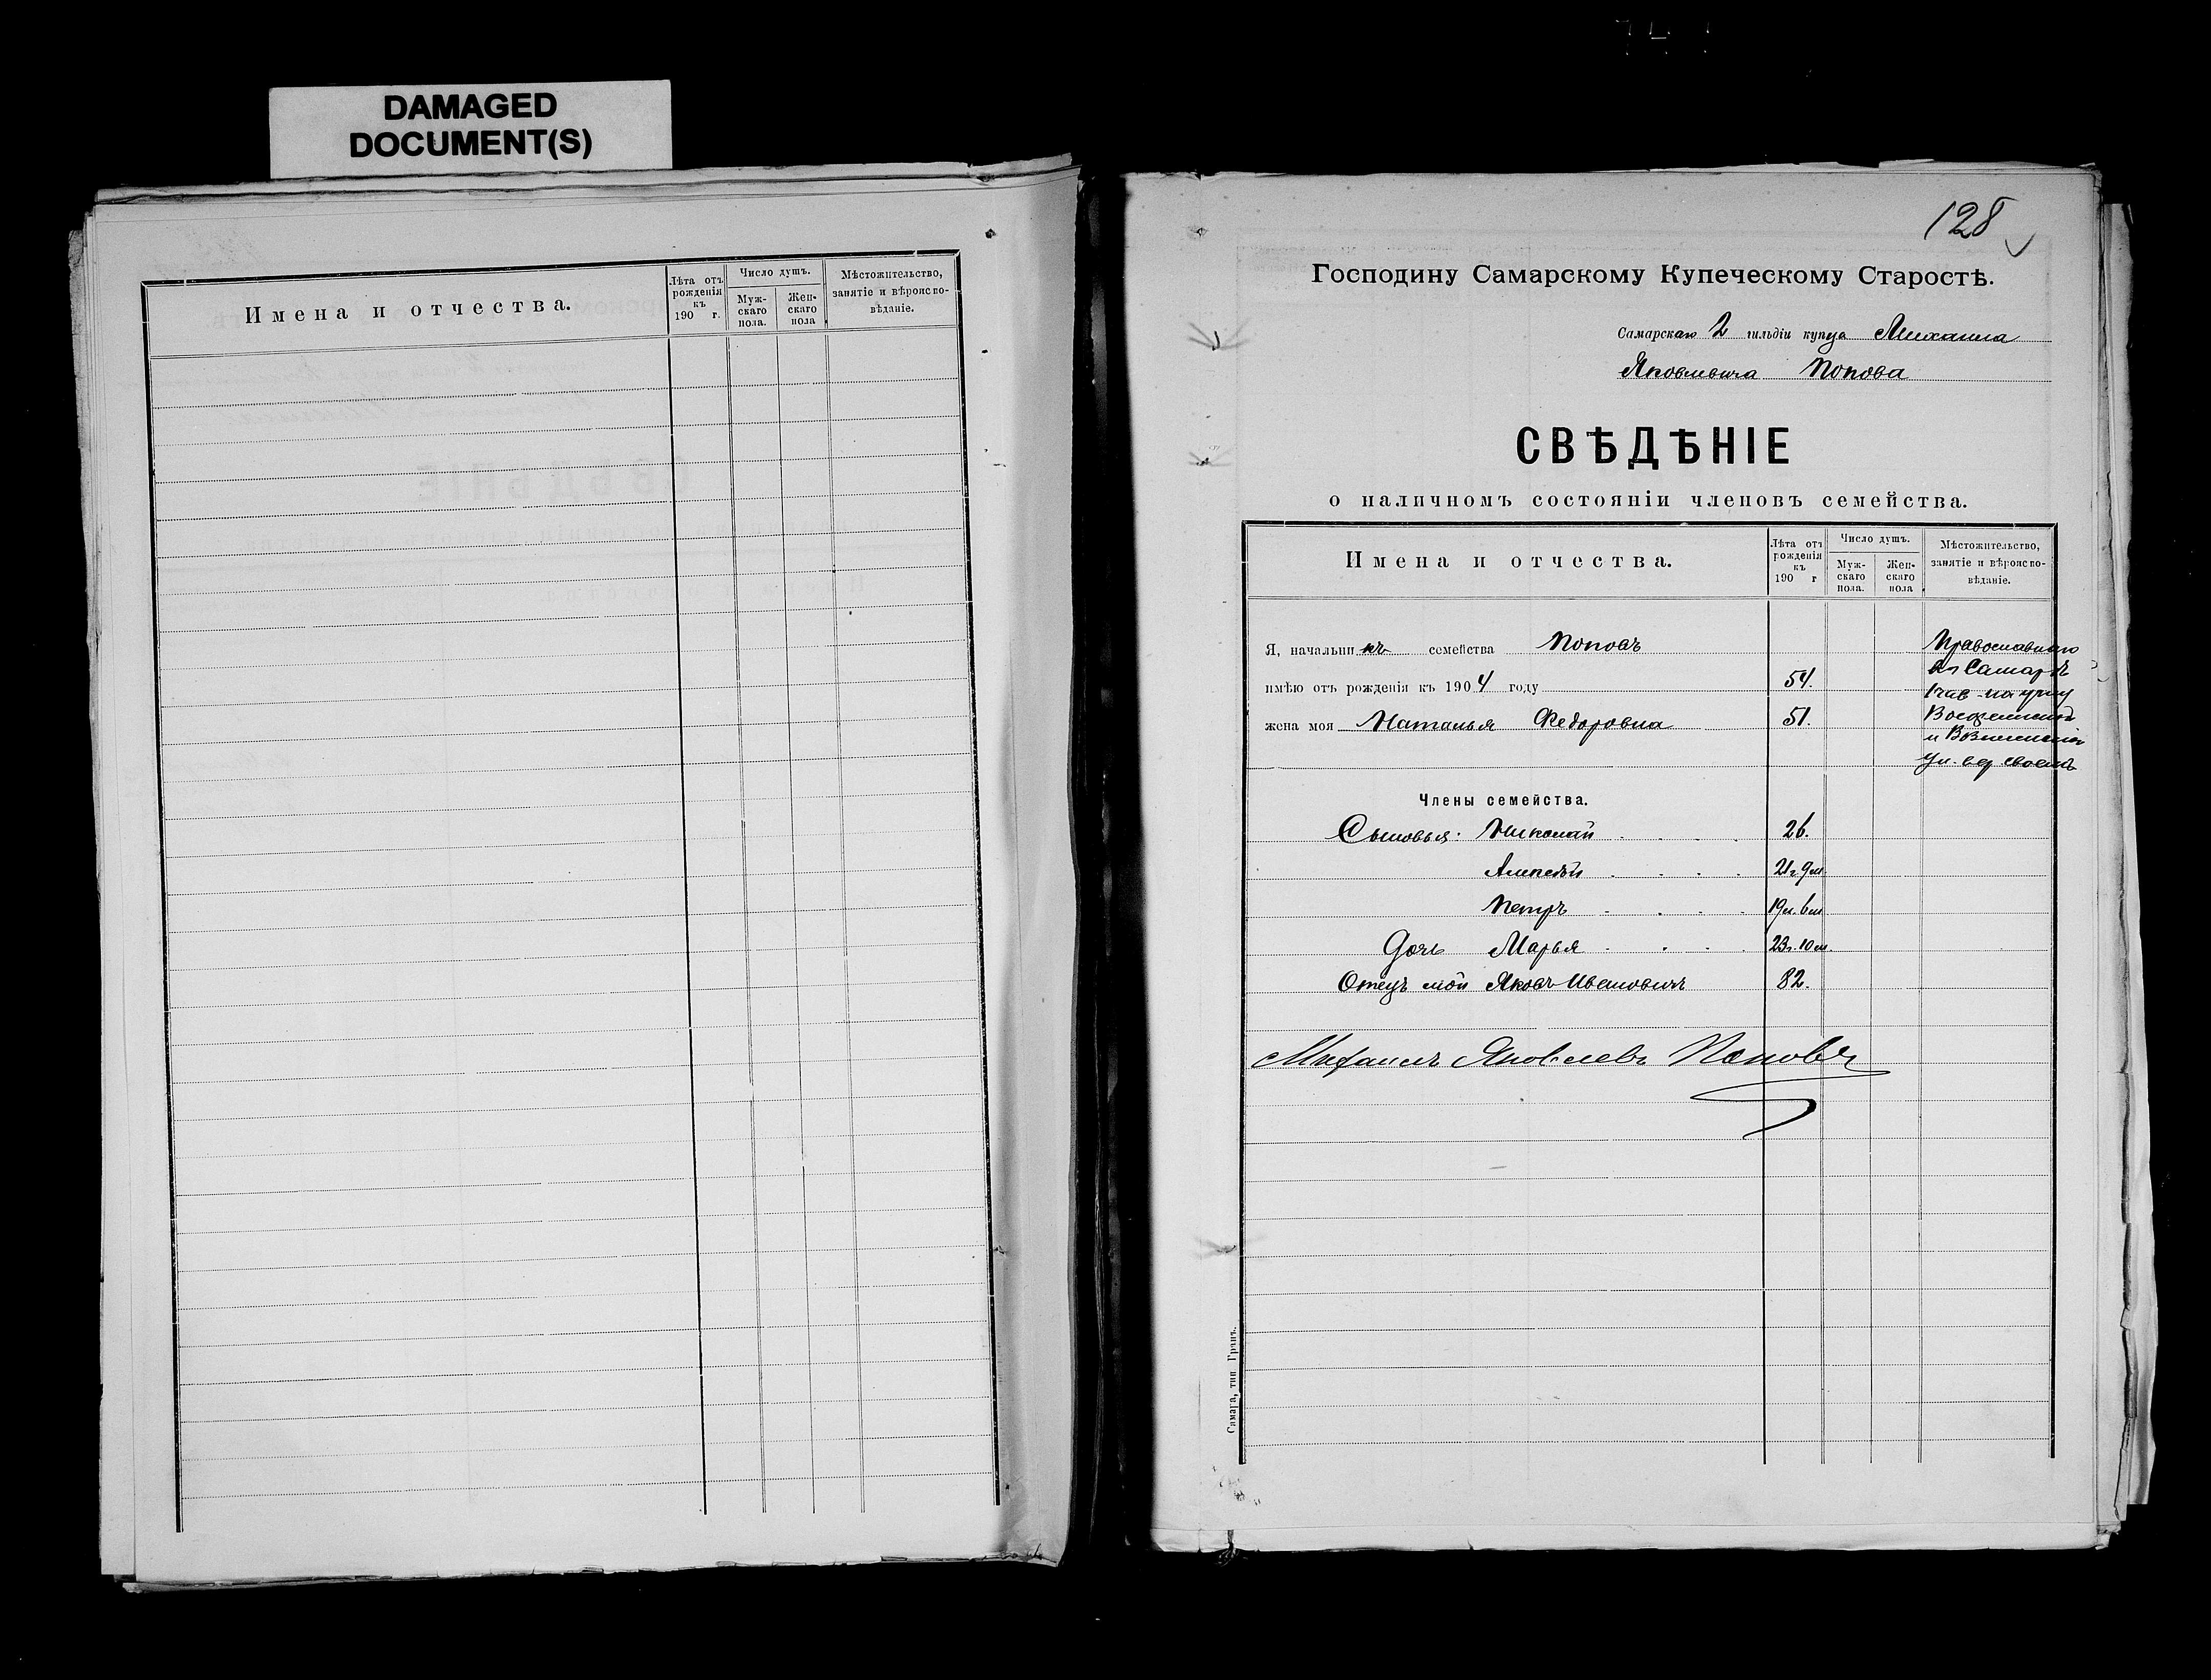 DAMAGED
DOCUMENT(S)
Имена и отчества.
Лѣта отъ рожденія къ 190 г.
Число душъ.
Мужскаго пола.
Женскаго пола
Мѣстожительство, занятіе и вѣроисповѣданіе.
128
Господину Самарскому Купеческому Старостѣ.
Самарскаго 2 гильдіи купца Михаила
Яковлевича Попова
СВѢДѢНІЕ
о наличномъ состояніи членовъ семейства.
Имена и отчества.
Лѣта отъ рожденія къ 190 г
Число душъ.
Мужскаго пола.
Женскаго пола
Мѣстожительство, занятіе и вѣроисповѣданіе.
Я, начальникъ семейства Поповъ
Православнаго
имѣю отъ рожденія къ 1904 году 54.
въ Самарѣ
жена моя Наталья Федоровна 51.
и Вознесенской
ул. въ своемъ
Члены семейства.
Сыновья: Николай 26.
Алексѣй 21 г. 9 м.
Петръ 19 л. 6 м.
Дочь Марья 23 г. 10 м.
Отецъ мой Яковъ Ивановичъ 82.
Михаилъ Яковлевъ Поповъ
Самара, тип. Гранъ.